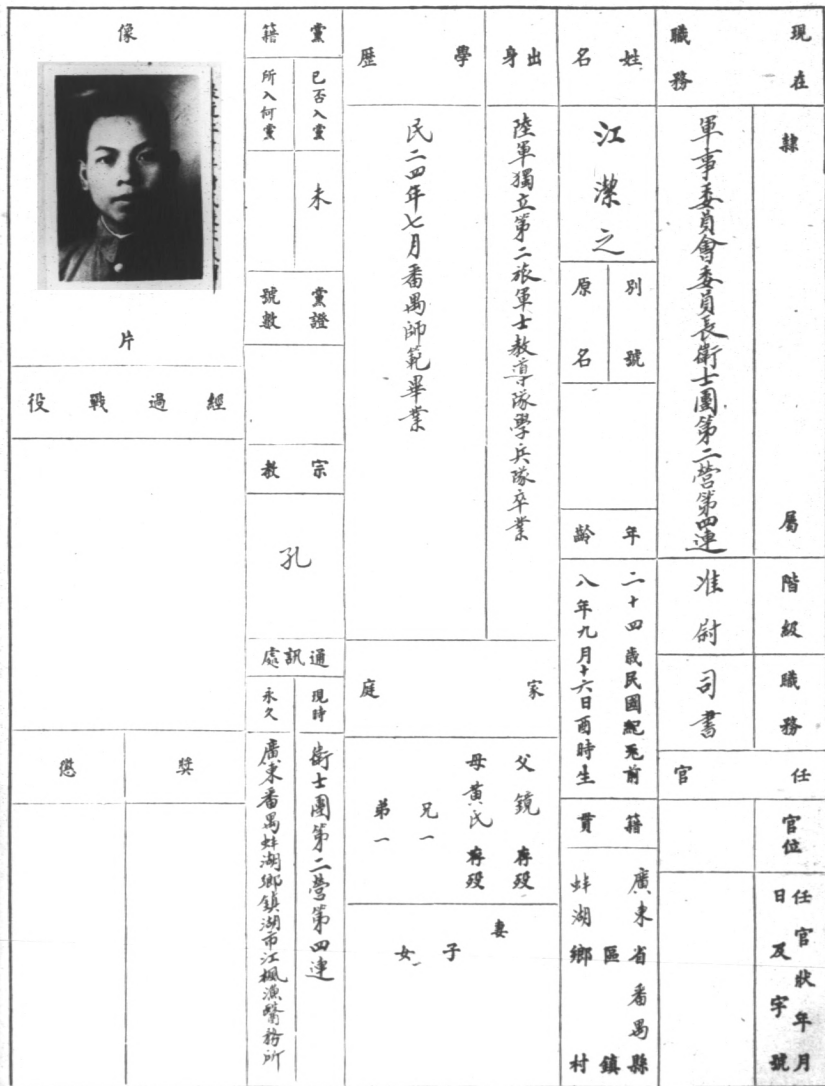 現在職務
隸屬
軍事委員會委員長衛士團第二營第四連
階級
准尉
職務
司書
任官
官位
任官狀年月日及字號
姓名
江潔之
別號
原名
年齡
二十四歲民國紀元前
八年九月十六日酉時生
籍貫
廣東省番禺縣
區鎮
蚌湖鄉村
出身
陸軍獨立第二旅軍士教導隊學兵隊卒業
學歷
民二四年七月番禺師範畢業
家庭
父鏡存歿
母黃氏存歿
兄一
弟一
妻
子
女
黨籍
已否入黨
未
所入何黨
黨證號數
宗教
孔
通訊處
現時
衛士團第二營第四連
永久
廣東番禺蚌湖鄉鎮湖市江楓漁醫務所
像片
經過戰役
獎
懲